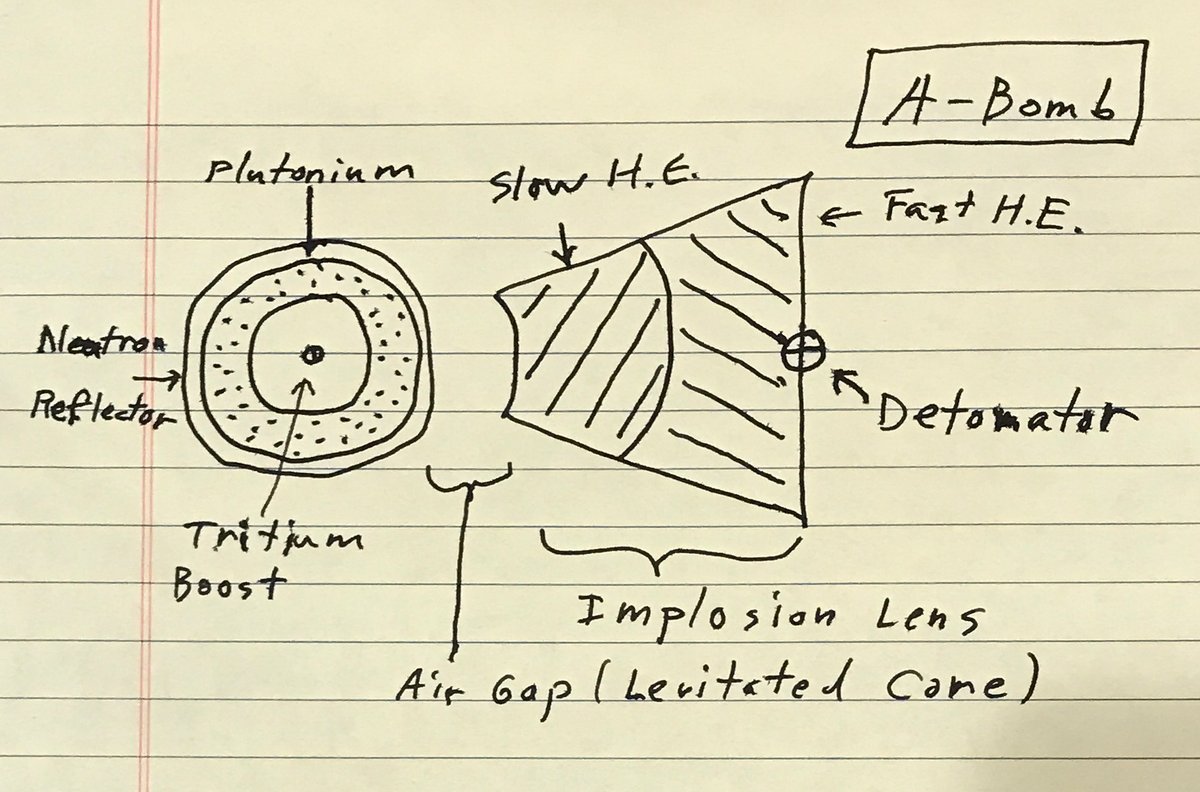 A-Bomb
Plutonium
Slow H.E.
Fast H.E.
Neutron
Reflector
Detonator
Tritium
Boost
Implosion Lens
Air Gap (Levitated Core)